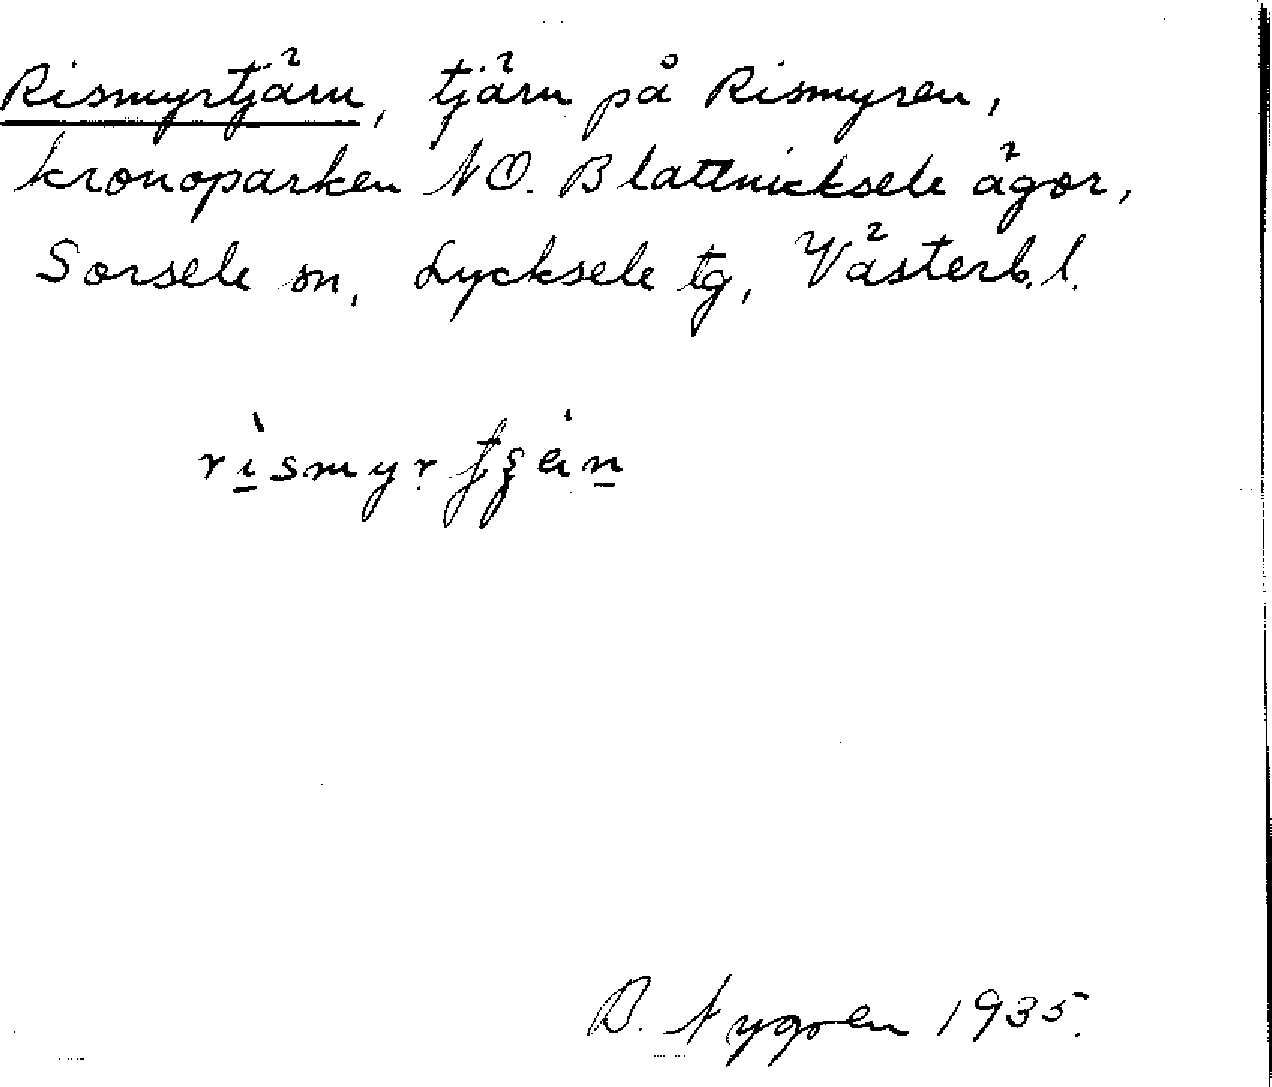 Rismyrtjärn, tjärn på Rismyren,
kronoparken NO. Blattnicksele ägor,
Sorsele sn, Lycksele tg, Västerb. l.
B. Nygren 1935.